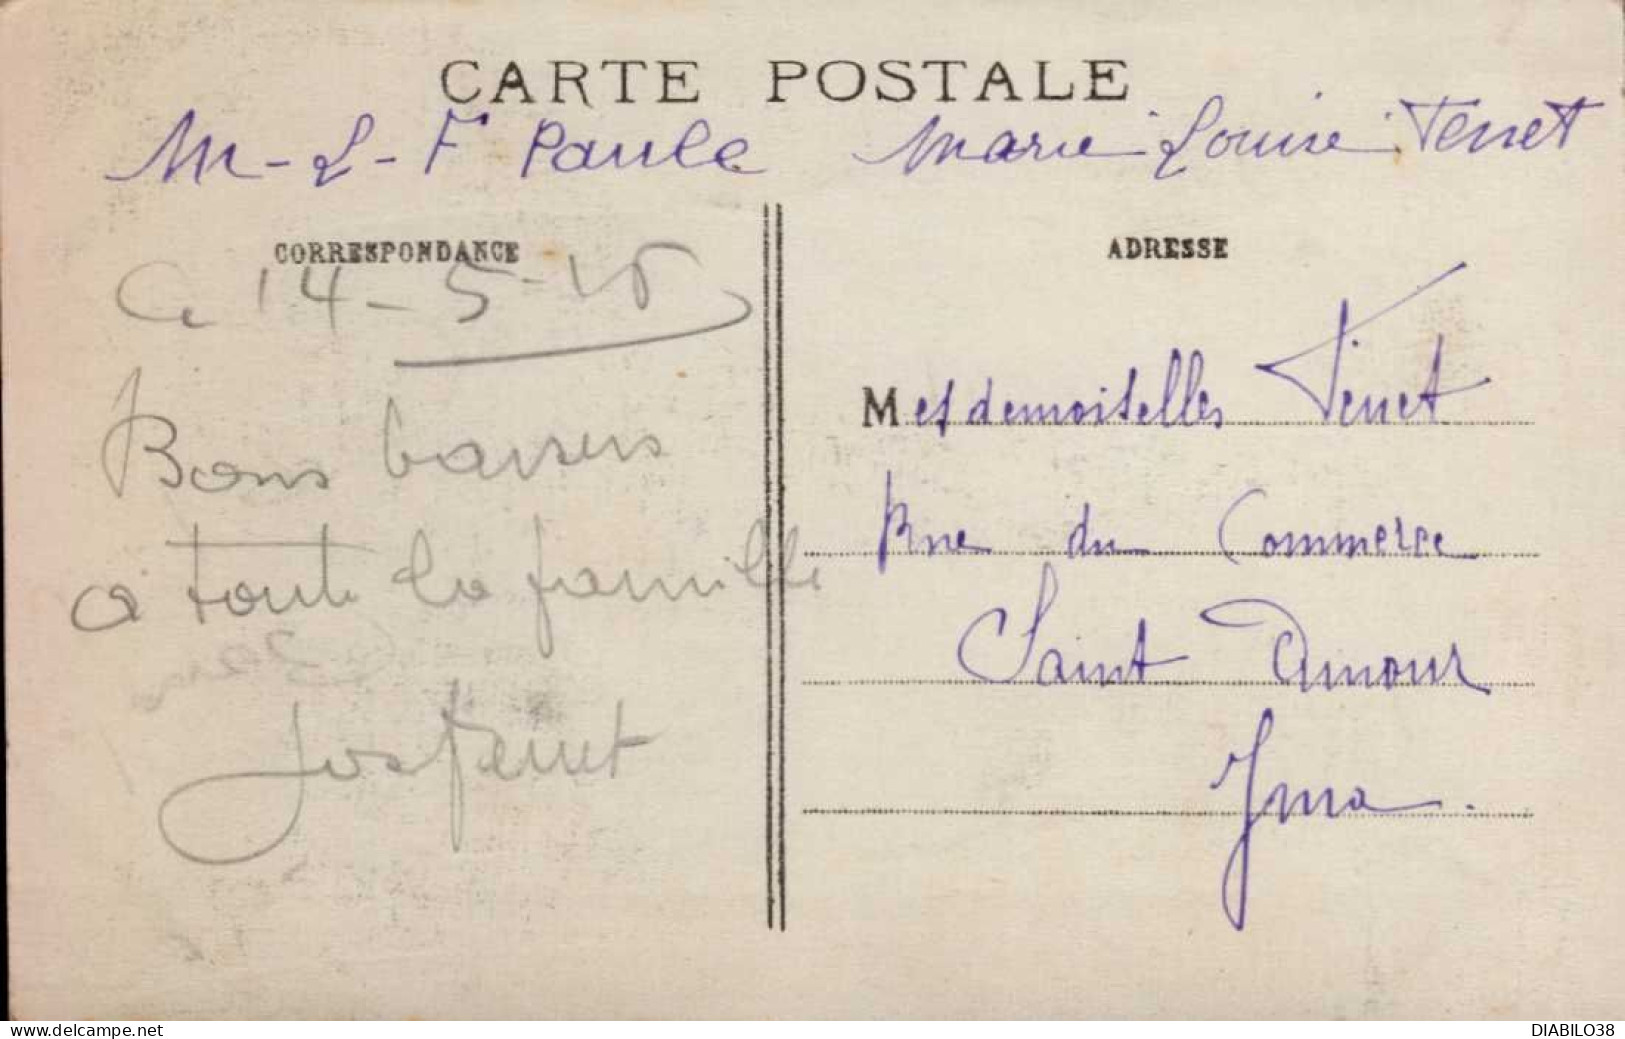 CARTE POSTALE
M-L-F Paule Marie-Louise Tenet
CORRESPONDANCE
Ce 14-5-15
Bons baisers
a toute la famille
ADRESSE
Mesdemoiselles Tenet
Rue du Commerce
Saint Amour
Jura.
www.delcampe.net
DIABILO38